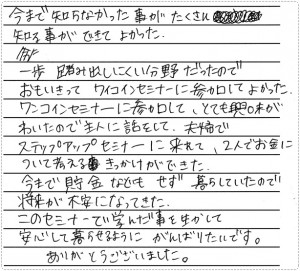 今まで知らなかった事がたくさん
知る事ができてよかった。
一歩踏み出しにくい分野だったので
おもいきってワイコインセミナーに参加してよかった。
ワンコインセミナーに参加して、とても興味が
わいたので主人に話をして、夫婦で
ステップアップセミナーに来れて、2人でお金に
ついて考えるきっかけができた。
今まで貯金などもせず暮らしていたので
将来が不安になってきた。
このセミナーで学んだ事を生かして
安心して暮らせるようにがんばりたいです。
ありがとうございました。